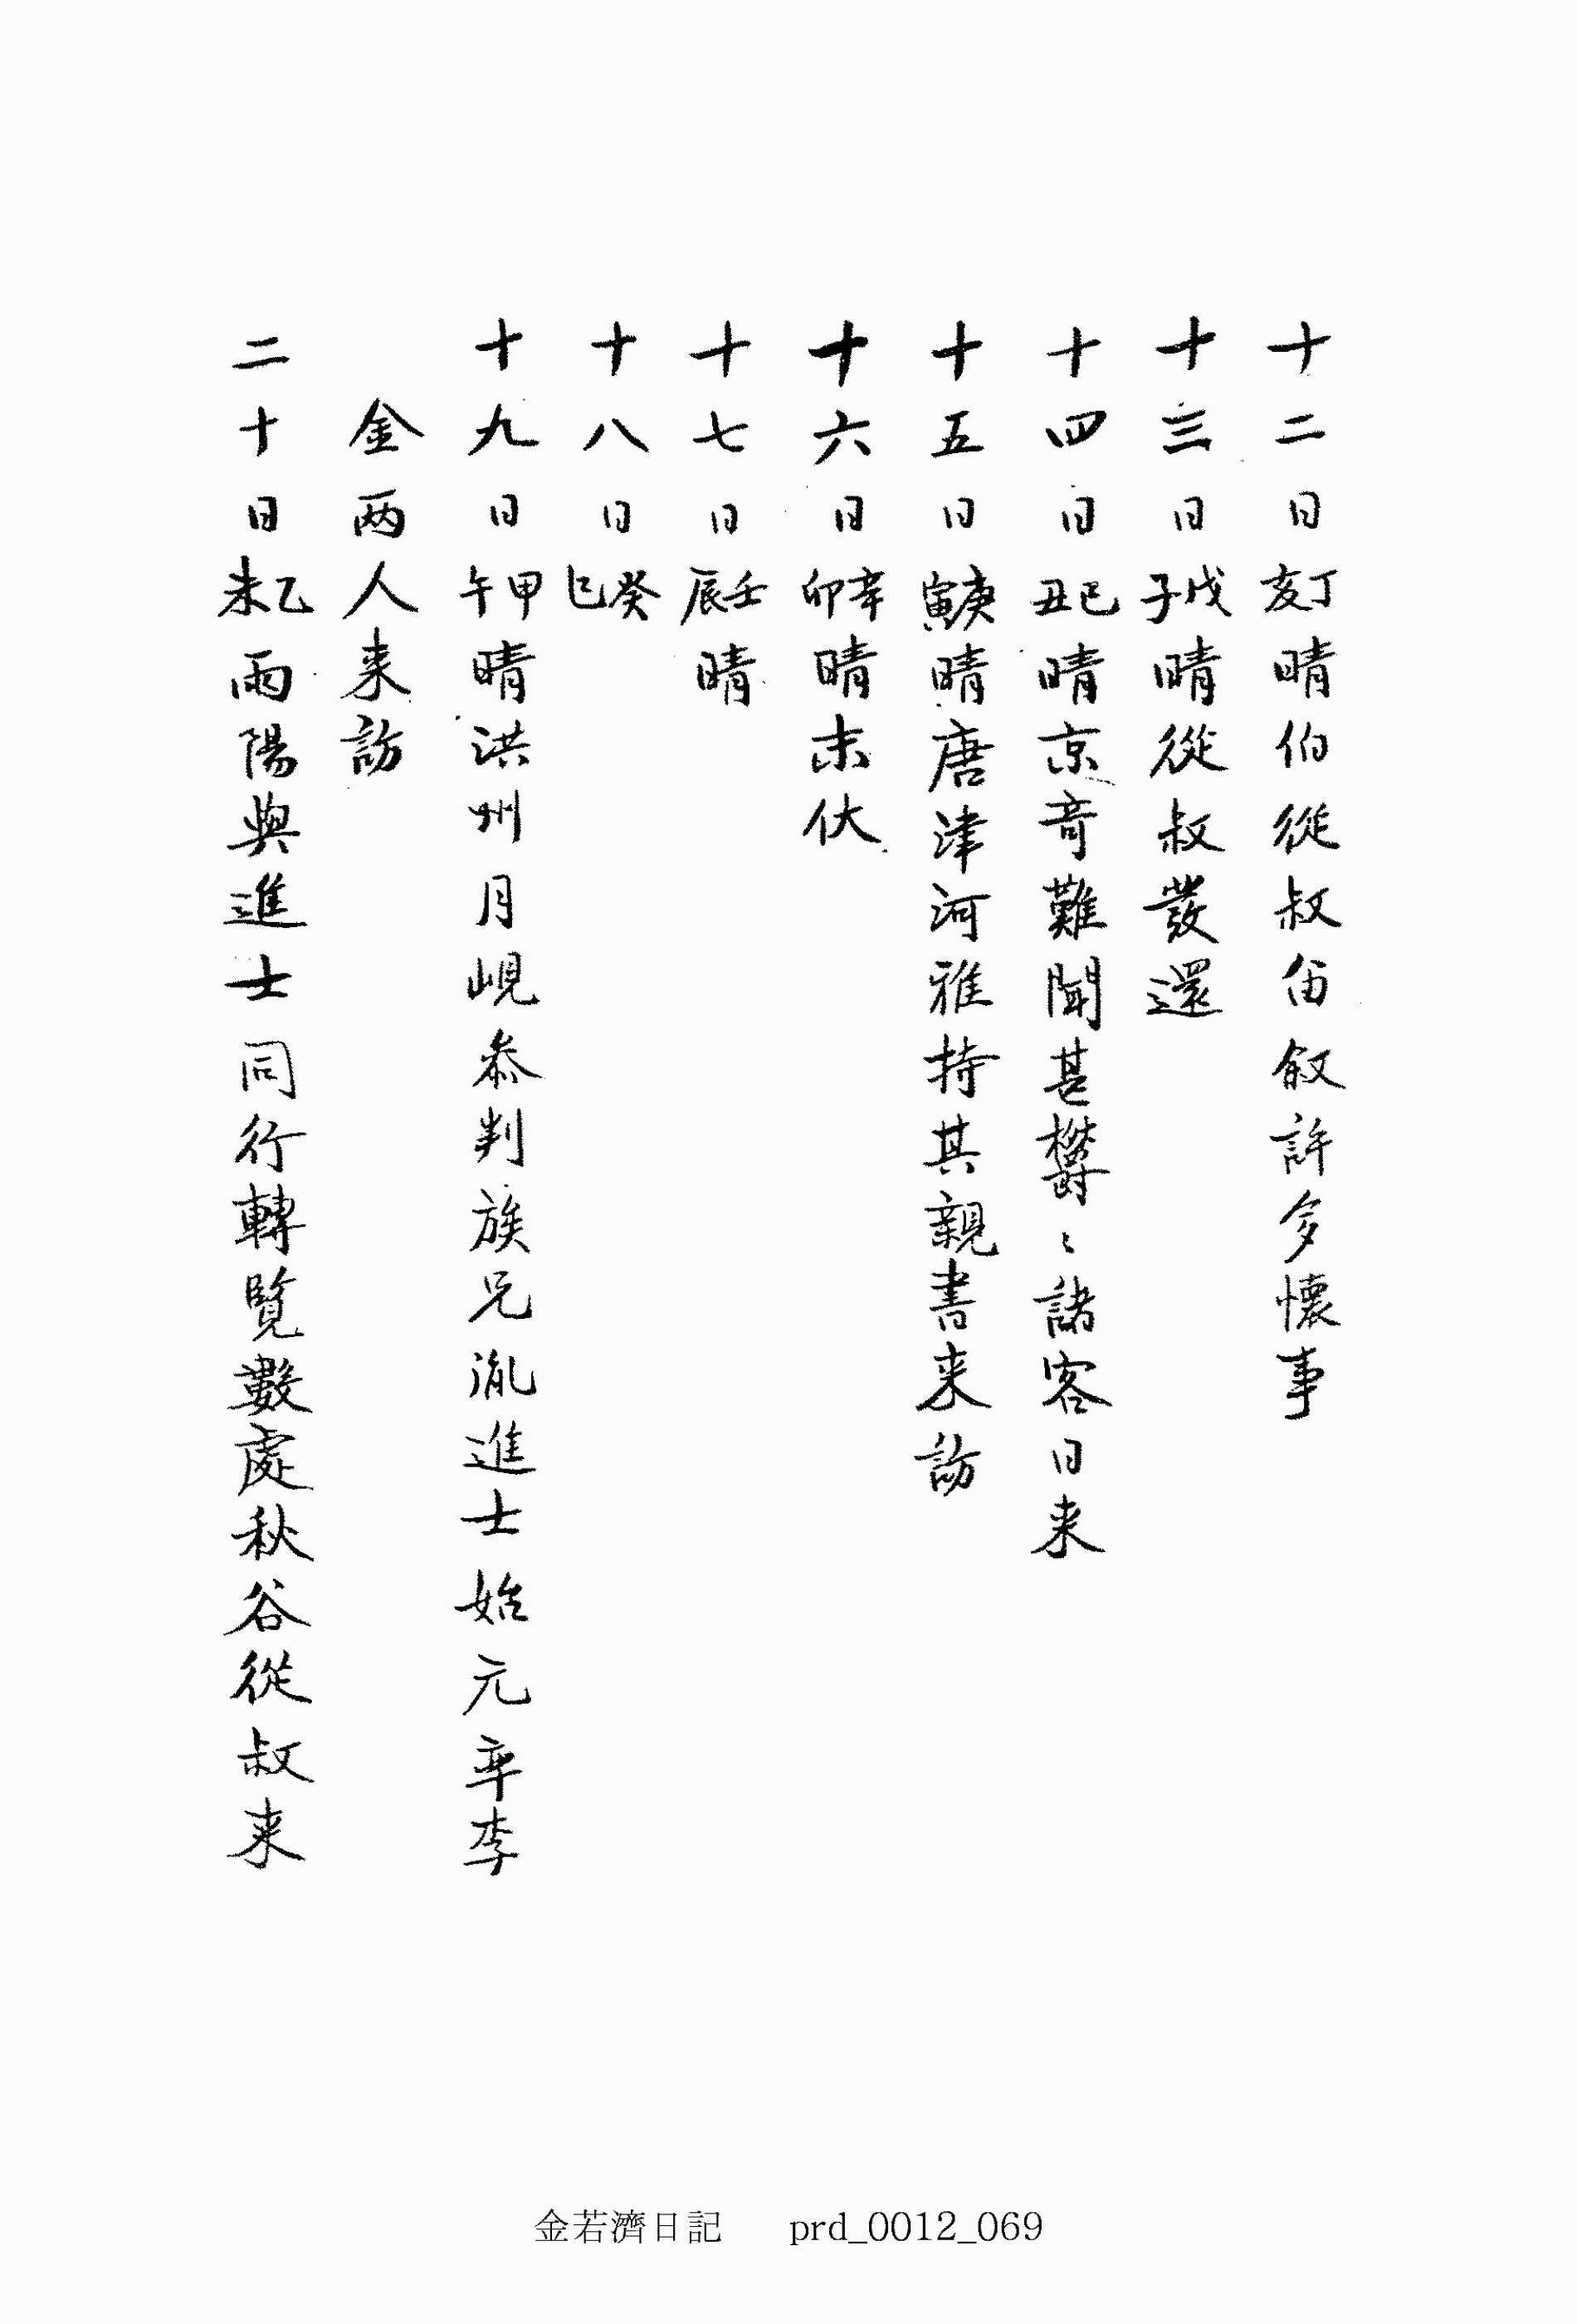 十二日丁亥晴伯從叔留叙許多懷事
十三日戊子晴從叔發還
十四日己丑晴京奇難聞甚欝〻諸客日来
十五日庚寅晴唐津河雅持其親書来訪
十六日辛卯晴末伏
十七日壬辰晴
十八日癸巳
十九日甲午晴洪州月峴叅判族兄胤進士始元率李
金两人来訪
二十日乙未雨陽與進士同行轉覧數處秋谷從叔来
金若濟日記 prd_0012_069